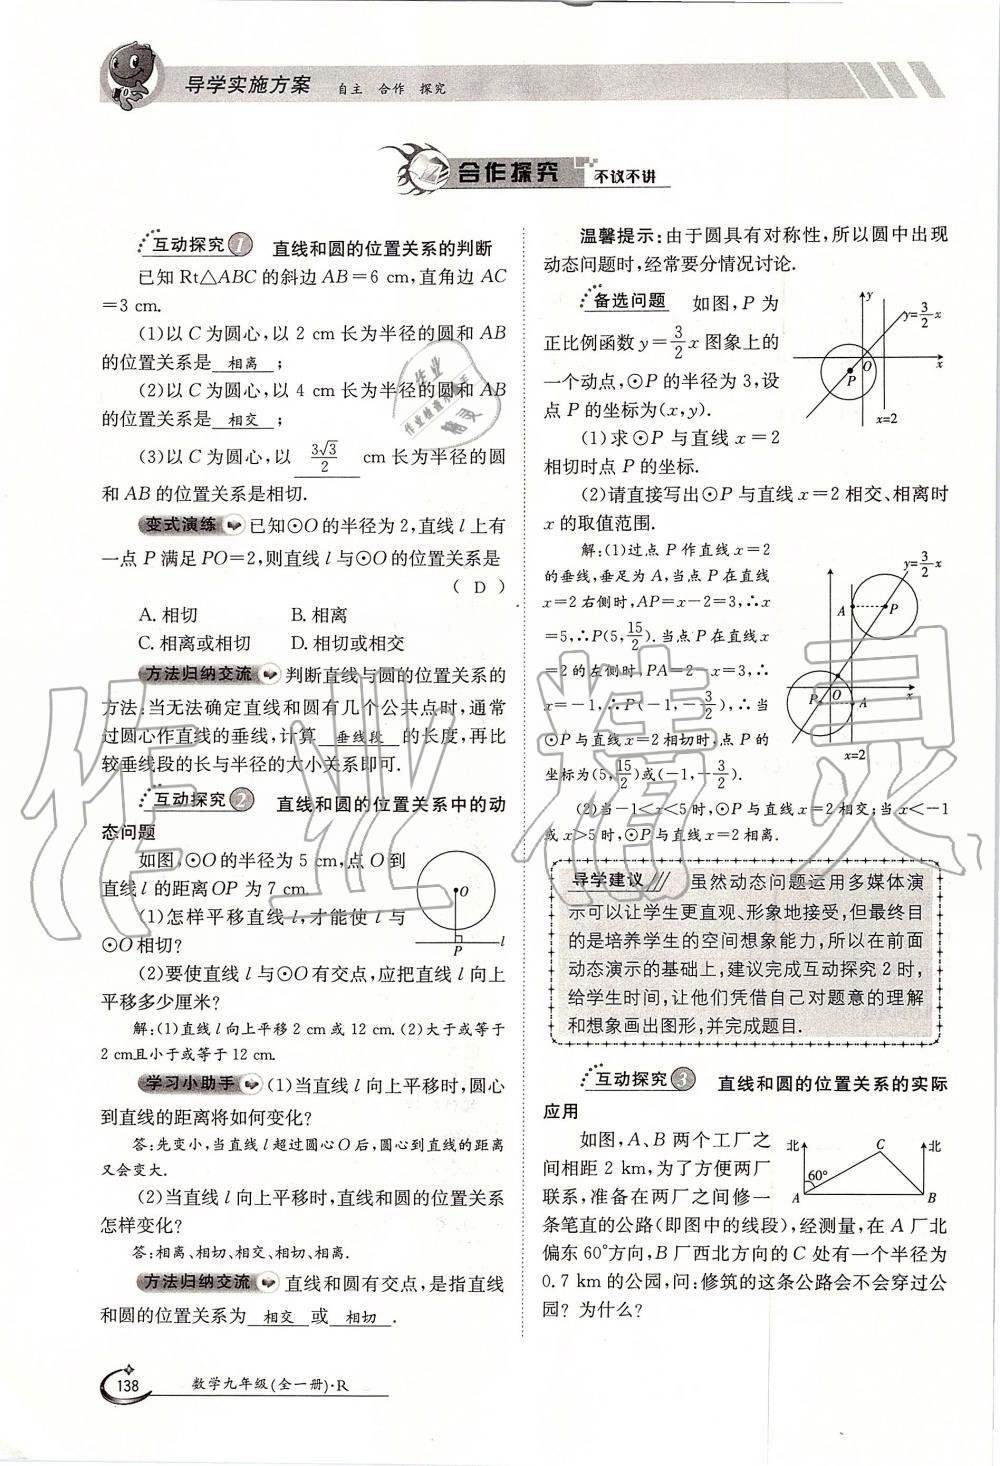 导学实施方案 自主 合作 探究
合作探究 不议不讲
互动探究1 直线和圆的位置关系的判断
已知 Rt△ABC 的斜边 AB=6 cm,直角边 AC
=3 cm.
(1)以 C 为圆心,以 2 cm 长为半径的圆和 AB
的位置关系是 相离 ;
(2)以 C 为圆心,以 4 cm 长为半径的圆和 AB
的位置关系是 相交 ;
(3)以 C 为圆心,以 3√3/2 cm 长为半径的圆
和 AB 的位置关系是相切.
变式演练 已知⊙O 的半径为 2,直线 l 上有
一点 P 满足 PO=2,则直线 l 与⊙O 的位置关系是
( D )
A. 相切 B. 相离
C. 相离或相切 D. 相切或相交
方法归纳交流 判断直线与圆的位置关系的
方法:当无法确定直线和圆有几个公共点时,通常
过圆心作直线的垂线,计算 垂线段 的长度,再比
较垂线段的长与半径的大小关系即可.
互动探究2 直线和圆的位置关系中的动
态问题
如图,⊙O 的半径为 5 cm,点 O 到
直线 l 的距离 OP 为 7 cm.
(1)怎样平移直线 l,才能使 l 与
⊙O 相切?
(2)要使直线 l 与⊙O 有交点,应把直线 l 向上
平移多少厘米?
解:(1)直线 l 向上平移 2 cm 或 12 cm. (2)大于或等于
2 cm且小于或等于 12 cm.
O
P
l
学习小助手 (1)当直线 l 向上平移时,圆心
到直线的距离将如何变化?
答:先变小,当直线 l 超过圆心 O 后,圆心到直线的距离
又会变大.
(2)当直线 l 向上平移时,直线和圆的位置关系
怎样变化?
答:相离、相切、相交、相切、相离.
方法归纳交流 直线和圆有交点,是指直线
和圆的位置关系为 相交 或 相切 .
138 数学九年级(全一册)·R
温馨提示:由于圆具有对称性,所以圆中出现
动态问题时,经常要分情况讨论.
备选问题 如图,P 为
正比例函数 y=3/2x 图象上的
一个动点,⊙P 的半径为 3,设
点 P 的坐标为(x,y).
(1)求⊙P 与直线 x=2
相切时点 P 的坐标.
(2)请直接写出⊙P 与直线 x=2 相交、相离时
x 的取值范围.
y
y=3/2x
O
x
P
x=2
解:(1)过点 P 作直线 x=2
的垂线,垂足为 A,当点 P 在直线
x=2 右侧时,AP=x-2=3,∴x
=5,∴P(5,15/2).当点 P 在直线 x
=2 的左侧时,PA=2-x=3,∴
x=-1,∴P(-1,-3/2),∴当
⊙P 与直线 x=2 相切时,点 P 的
坐标为(5,15/2)或(-1,-3/2).
(2)当-1<x<5 时,⊙P 与直线 x=2 相交;当 x<-1
或 x>5 时,⊙P 与直线 x=2 相离.
y=3/2x
A
P
O
x
P
A
x=2
导学建议 虽然动态问题运用多媒体演
示可以让学生更直观、形象地接受,但最终目
的是培养学生的空间想象能力,所以在前面
动态演示的基础上,建议完成互动探究 2 时,
给学生时间,让他们凭借自己对题意的理解
和想象画出图形,并完成题目.
互动探究3 直线和圆的位置关系的实际
应用
如图,A、B 两个工厂之
间相距 2 km,为了方便两厂
联系,准备在两厂之间修一
条笔直的公路(即图中的线段),经测量,在 A 厂北
偏东 60°方向,B 厂西北方向的 C 处有一个半径为
0.7 km 的公园,问:修筑的这条公路会不会穿过公
园? 为什么?
北
C
北
60°
A
B
作业精灵